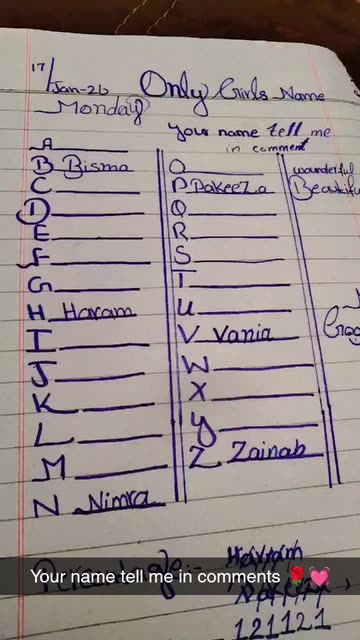 17/Jan-26 Only Girls Name
Monday
Your name tell me
in comment
A
B Bisma
C
D
E
F
G
H Haram
I
J
K
L
M
N Nimra
O
P PakeeZa
Q
R
S
T
U
V Vania
W
X
Y
Z Zainab
wounderful
Beautiful
Your name tell me in comments 🌹💓
121121